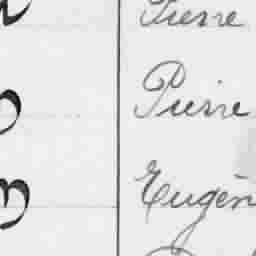 Pierre
Pierre
Eugèn